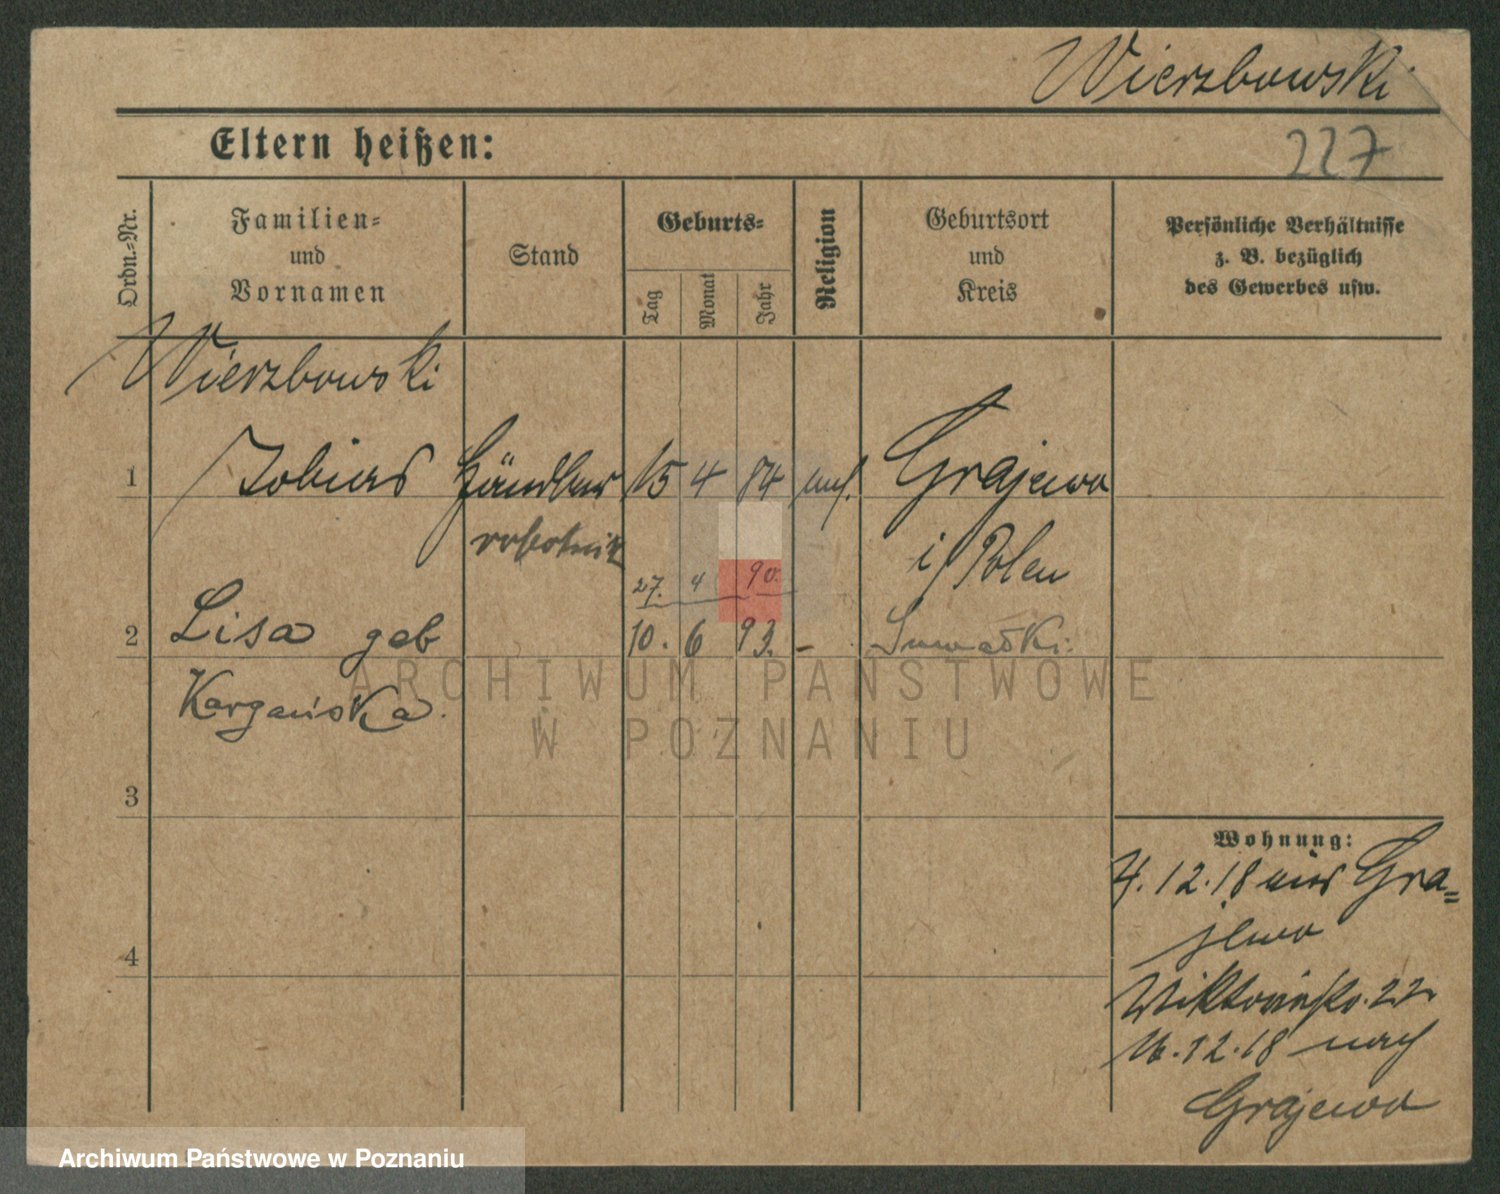 Wierzbowski
Eltern heißen:
227
Ordn.-Nr.
Familien-
und
Vornamen
Stand
Geburts-
Tag
Monat
Jahr
Religion
Geburtsort
und
Kreis
Persönliche Verhältnisse
z. B. bezüglich
des Gewerbes usw.
Wierzbowski
1 Tobias Händler 15 4 84 mos. Grajewo
robotnik i/Polen
27. 4 90.
2 Lisa geb 10. 6 93. - Suwałki.
Kargańska.
3
4
Wohnung:
4.12.18 aus Gra-
jewo
Viktoriastr. 22
16.12.18 nach
Grajewo
ARCHIWUM PAŃSTWOWE
W POZNANIU
Archiwum Państwowe w Poznaniu